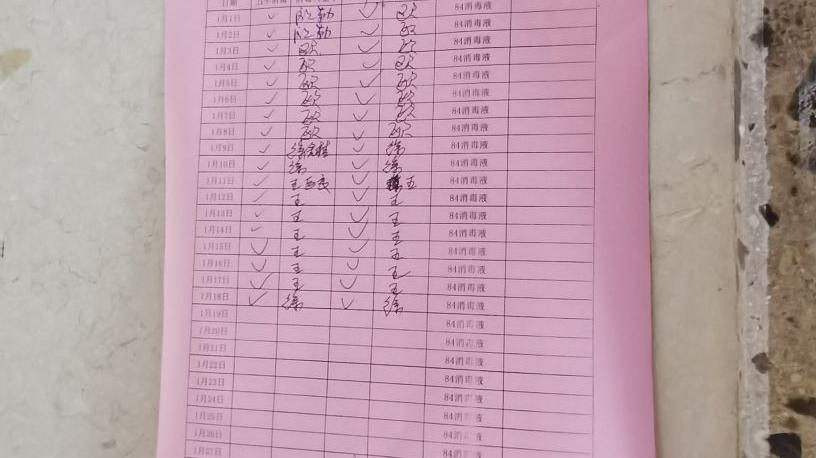 日期
1月1日 ✓ ✓ 84消毒液
1月2日 ✓ ✓ 84消毒液
1月3日 ✓ 欧 ✓ 欧 84消毒液
1月4日 ✓ 欧 ✓ 欧 84消毒液
1月5日 ✓ 欧 ✓ 欧 84消毒液
1月6日 ✓ 欧 ✓ 欧 84消毒液
1月7日 ✓ 欧 ✓ 欧 84消毒液
1月8日 ✓ 欧 ✓ 欧 84消毒液
1月9日 ✓ ✓ 徐 84消毒液
1月10日 ✓ 徐 ✓ 徐 84消毒液
1月11日 ✓ 王 ✓ 王 84消毒液
1月12日 ✓ 王 ✓ 王 84消毒液
1月13日 ✓ 王 ✓ 王 84消毒液
1月14日 ✓ 王 ✓ 王 84消毒液
1月15日 ✓ 王 ✓ 王 84消毒液
1月16日 ✓ 王 ✓ 王 84消毒液
1月17日 ✓ 王 ✓ 王 84消毒液
1月18日 ✓ 徐 ✓ 徐 84消毒液
1月19日 84消毒液
1月20日 84消毒液
1月21日 84消毒液
1月22日 84消毒液
1月23日 84消毒液
1月24日 84消毒液
1月25日 84消毒液
1月26日 84消毒液
1月27日 84消毒液